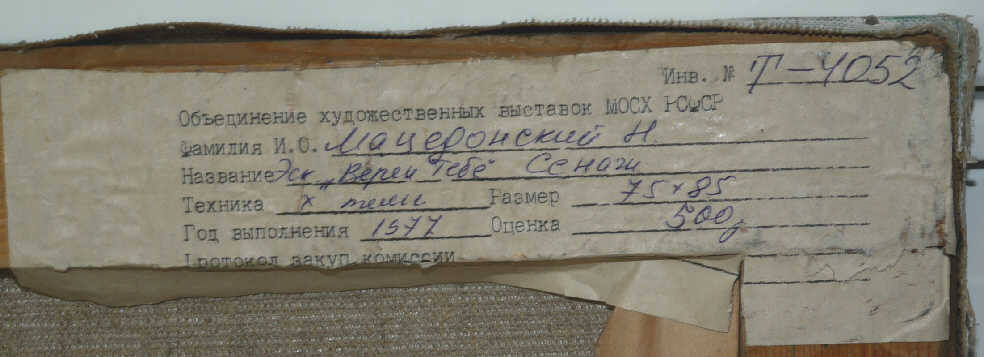 Инв. № Т-4052
Объединение художественных выставок МОСХ РСФСР
Фамилия И.О. Мацедонский Н.
Название Эск „Верен Тебе" Сенаж
Техника х темп Размер 75×85
Год выполнения 1977 Оценка 500р
Протокол закуп комиссии